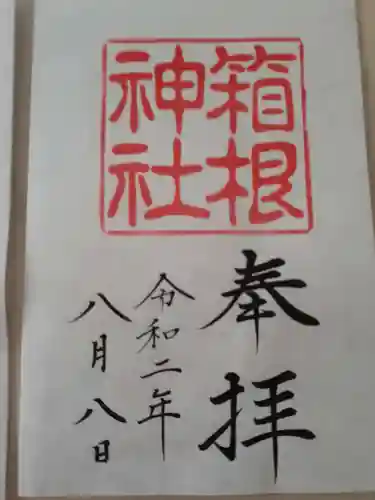 箱根
神社
奉拝
令和二年
八月八日